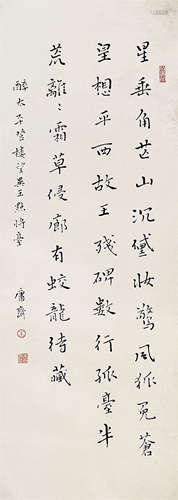 星垂角芒山沉妝驚風狐兔蒼
望想平西故王殘碑數行孤臺半
荒離〻霜草侵廊有蛟龍待藏
醉太平登樓望吳王點將臺 庸齋